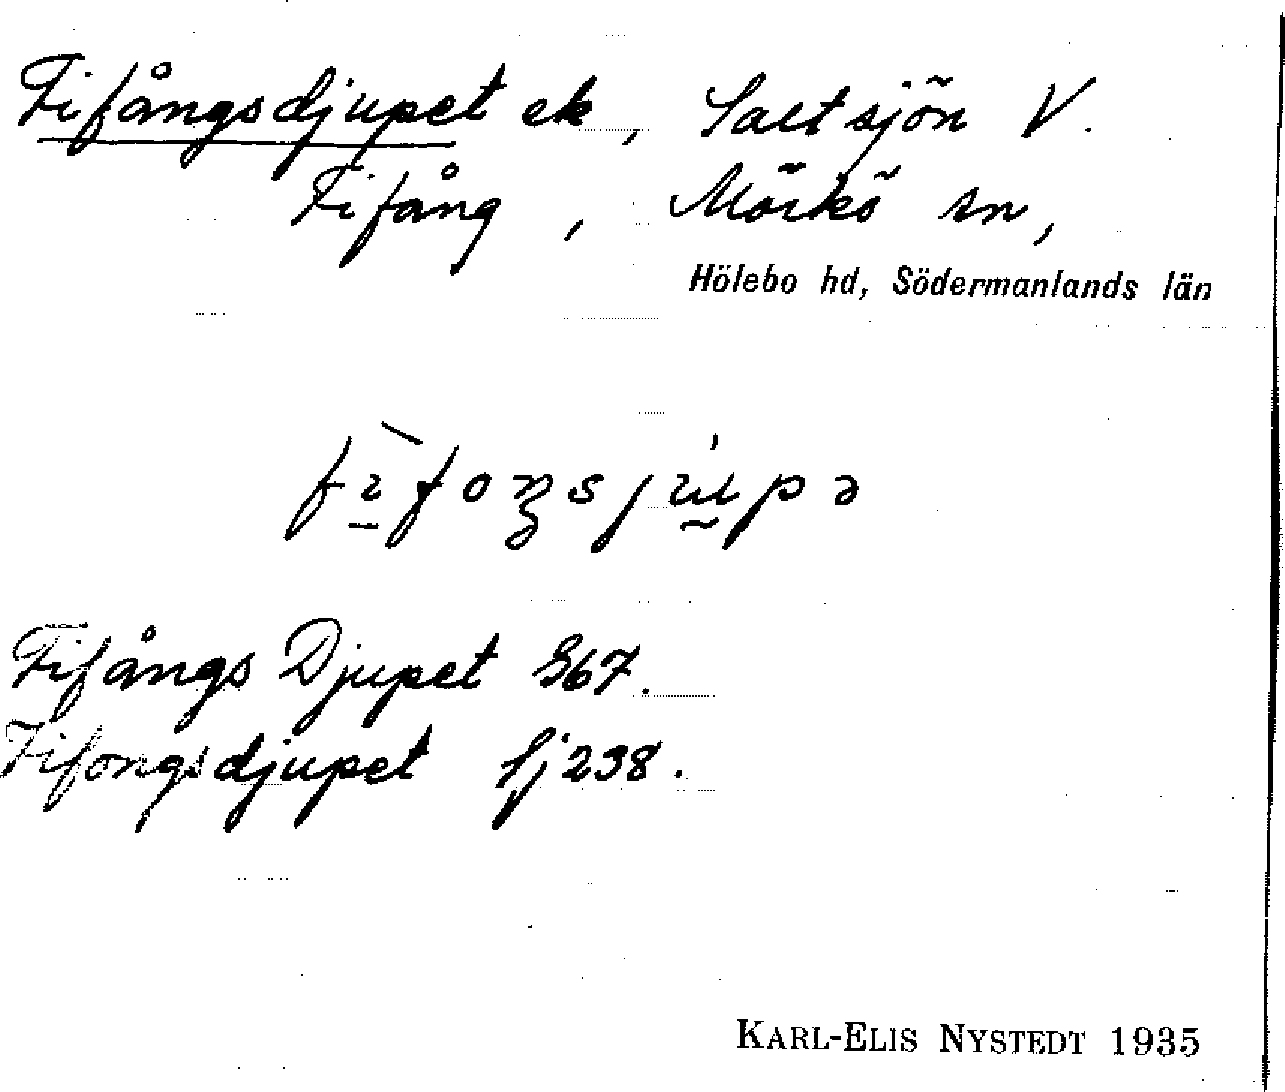 Fifångsdjupet ek, Saltsjön V.
Fifång, Mörkö sn,
Hölebo hd, Södermanlands län
Fifångs Djupet S67.
Fifongsdjupet Sj 238.
KARL-ELIS NYSTEDT 1935